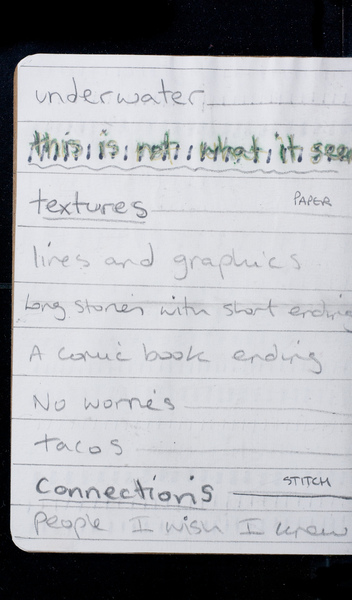 underwater
this is not what it seem
textures PAPER
lines and graphics
Long stories with short ending
A comic book ending
No worries
tacos
Connections STITCH
People I wish I knew